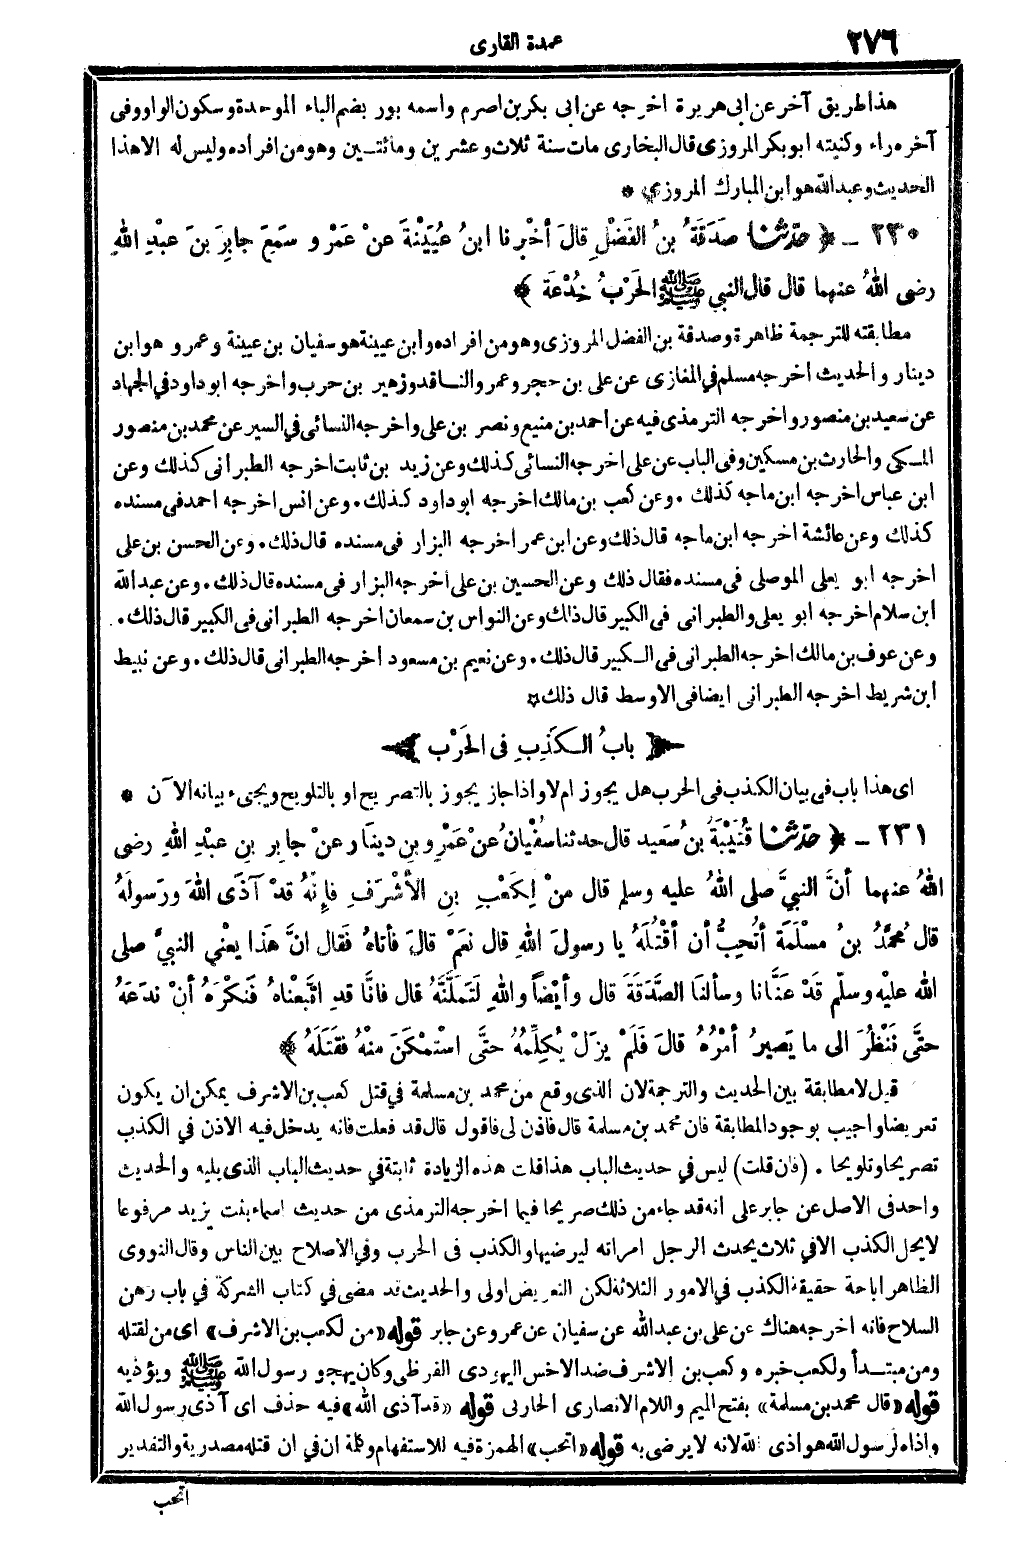 ٢٧٦
عمدة القارى
هذا طريق آخر عن ابى هريرة اخرجه عن ابى بكر بن اصرم واسمه بور بضم الباء الموحدة وسكون الواو وفى
آخره راء وكنيته ابو بكر المروزى قال البخارى مات سنة ثلاث وعشرين ومائتــين وهو من افراده وليس له الا هذا
الحديث وعبد الله هو ابن المبارك المروزي *
٢٣٠ ـ ﴿ حدّثنا صَدَقَةُ بنُ الفَضْلِ قالَ أخْبرنا ابنُ عُيَيْنَةَ عنْ عَمْرٍ و سمَعَ جابِرَ بنَ عبْدِ اللهِ
رضى اللهُ عنهما قال قال النبي ﷺ الحَرْبُ خُدْعَة ﴾
مطابقته للترجمة ظاهرة وصدقة بن الفضل المروزى وهو من افراده وابن عيينة هو سفيان بن عيينة وعمرو هو ابن
دينار والحديث اخرجه مسلم في المغازى عن على بن حجر وعمرو الناقد وزهير بن حرب واخرجه ابو داود في الجهاد
عن سعيد بن منصور واخرجه الترمذى فيه عن احمد بن منيع ونصر بن على واخرجه النسائى في السير عن محمد بن منصور
المـكى والحارث بن مسكين وفى الباب عن على اخرجه النسائى كذلك وعن زيد بن ثابت اخرجه الطبرانى كذلك وعن
ابن عباس اخرجه ابن ماجه كذلك . وعن كعب بن مالك اخرجه ابو داود كذلك . وعن انس اخرجه احمد فى مسنده
كذلك وعن عائشة اخرجه ابن ماجه قال ذلك وعن ابن عمر اخرجه البزار فى مسنده قال ذلك . وعن الحسن بن على
اخرجه ابو يعلى الموصلى فى مسنده فقال ذلك وعن الحسين بن على اخرجه البزار فى مسنده قال ذلك . وعن عبد الله
ابن سلام اخرجه ابو يعلى والطبرانى فى الكبير قال ذلك وعن النواس بن سمعان اخرجه الطبرانى فى الكبير قال ذلك .
وعن عوف بن مالك اخرجه الطبرانى فى الـكبير قال ذلك . وعن نعيم بن مسعود اخرجه الطبرانى قال ذلك . وعن نبيط
ابن شريط اخرجه الطبرانى ايضا فى الاوسط قال ذلك *
﴿ بابُ الـكَذِبِ فى الحَرْبِ ﴾
اى هذا باب فى بيان الكذب فى الحرب هل يجوز ام لا واذا جاز يجوز بالتصريح او بالتلويح ويجىء بيانه الآن *
٢٣١ ـ ﴿ حدّثنا قُتَيْبَةُ بنُ سَعيد قال حدثنا سُفْيانُ عنْ عَمْرِ و بنِ دينار عنْ جابِرِ بنِ عبْدِ اللهِ رضى
اللهُ عنهما أنَّ النبيَّ صلى اللهُ عليه وسلم قال منْ لِكَعْبِ بنِ الأشْرَفِ فإنهُ قدْ آذَى اللهَ ورَسولَهُ
قال مُحمَّدُ بنُ مسْلَمَةَ أتُحِبُّ أن أقْتُلَهُ يا رسولَ اللهِ قال نعَمْ قالَ فأتاهُ فَقال انَّ هَذا يعْني النبيَّ صلى
الله عليْه وسلّم قدْ عَنَّانا وسألنَا الصَّدَقَةَ قال وأيْضاً واللهِ لتَمَلُّنَّهُ قال فانَّا قدِ اتّبعْناهُ فَنكْرَهُ أنْ ندَعَهُ
حتَّى نَنْظُرَ الى ما يَصيرُ أمْرُهُ قالَ فَلَمْ يزَلْ يُكلِّمُهُ حتَّى اسْتمْكَنَ منْهُ فقَتَلَهُ ﴾
قيل لا مطابقة بين الحديث والترجمة لان الذى وقع من محمد بن مسلمة في قتل كعب بن الاشرف يمكن ان يكون
تعريضا واجيب بوجود المطابقة فان محمد بن مسلمة قال فاذن لى فاقول قال قد فعلت فانه يدخل فيه الاذن في الكذب
تصريحا وتلويحا . (فان قلت) ليس في حديث الباب هذا قلت هذه الزيادة ثابتة في حديث الباب الذى يليه والحديث
واحد فى الاصل عن جابر على انه قد جاء من ذلك صريحا فيما اخرجه الترمذى من حديث اسماء بنت يزيد مرفوعا
لا يحل الكذب الا في ثلاث يحدث الرجل امراته ليرضيها والكذب فى الحرب وفي الاصلاح بين الناس وقال النووى
الظاهر اباحة حقيقة الكذب في الامور الثلاثة لكن التعريض اولى والحديث قد مضى في كتاب الشركة في باب رهن
السلاح فانه اخرجه هناك عن على بن عبد الله عن سفيان عن عمرو عن جابر قوله «من لكعب بن الاشرف» اى من لقتله
ومن مبتــدأ ولكعب خبره وكعب بن الاشرف ضد الاخس اليهودى القرظى وكان يهجو رسول الله ﷺ ويؤذيه
قوله «قال محمد بن مسلمة» بفتح الميم واللام الانصارى الحارثى قوله «قد آذى الله» فيه حذف اى آذى رسول الله
واذاه لرسول الله هو اذى الله لانه لا يرضى به قوله «اتحب» الهمزة فيه للاستفهام وكلمة ان في ان قتله مصدرية والتقدير
اتحب